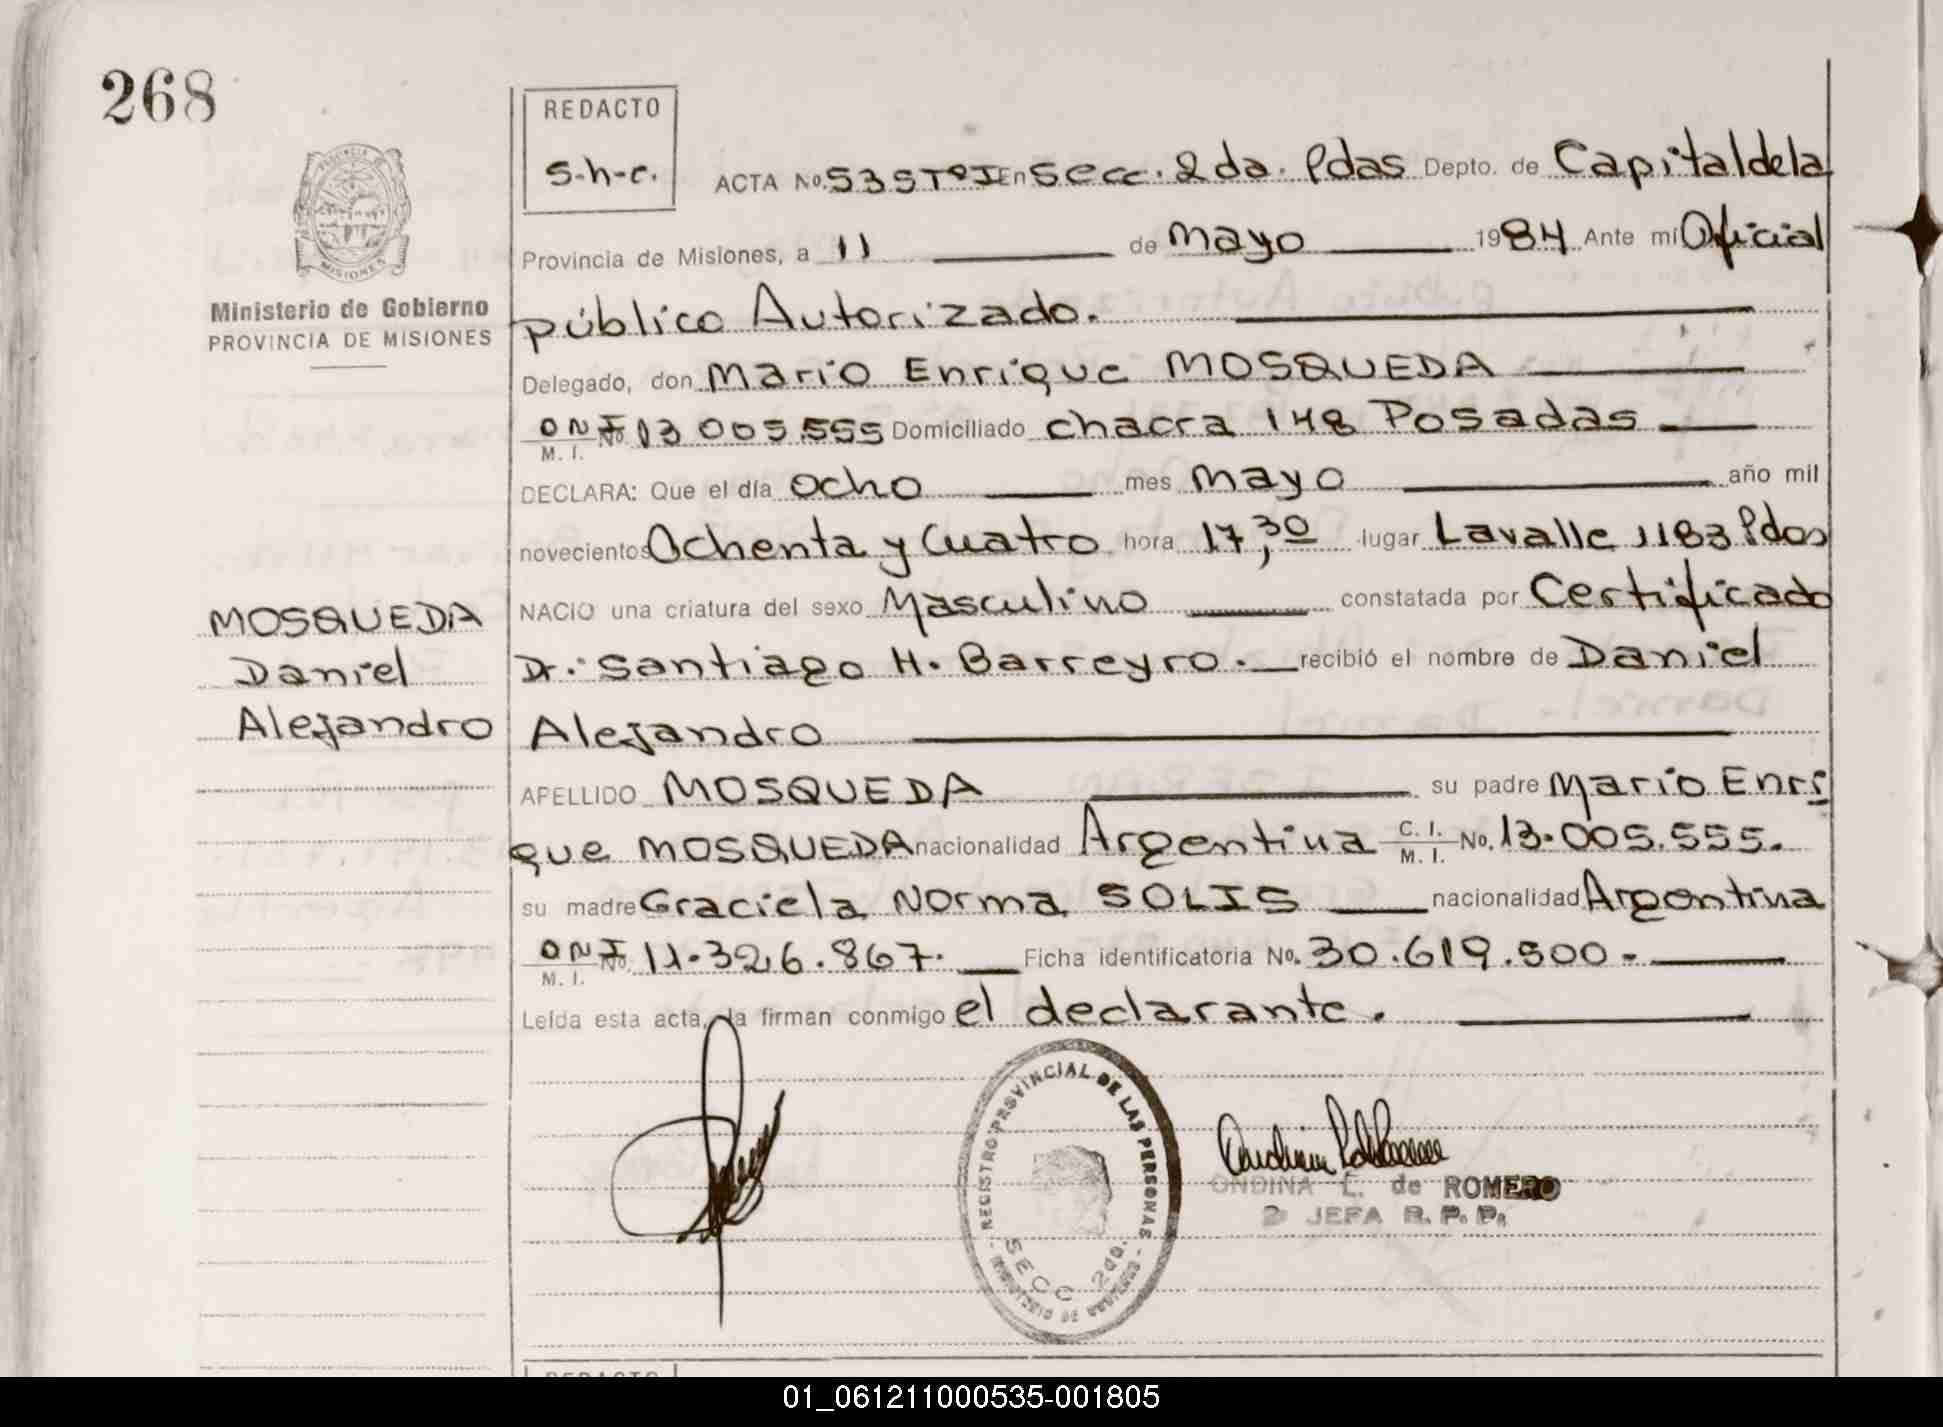 268
REDACTO
S-h-c.
PROVINCIA DE
MISIONES
Ministerio de Gobierno
PROVINCIA DE MISIONES
ACTA No. 535 Tº I En Secc. 2da. Pdas Depto. de Capital de la
Provincia de Misiones, a 11 de Mayo 1984 Ante mi Oficial
público Autorizado.
Delegado, don Mario Enrique MOSQUEDA
DNI M. I. No 13 005.555 Domiciliado chacra 148 Posadas
DECLARA: Que el día ocho mes Mayo año mil
novecientos Ochenta y Cuatro hora 17,30 lugar Lavalle 1183 Pdas
NACIO una criatura del sexo Masculino constatada por Certificado
Dr. Santiago H. Barreyro. recibió el nombre de Daniel
Alejandro
MOSQUEDA
Daniel
Alejandro
APELLIDO MOSQUEDA su padre Mario Enri
que MOSQUEDA nacionalidad Argentina C. I. M. I. No. 13.005.555.
su madre Graciela Norma SOLIS nacionalidad Argentina
DNI M. I. No. 11.326.867. Ficha identificatoria No. 30.619.500-
Leída esta acta, la firman conmigo el declarante.
REGISTRO PROVINCIAL DE LAS PERSONAS
SECC 2da.
MINISTERIO DE GOBIERNO
ONDINA L. de ROMERO
2 JEFA R. P. P.
REDACTO
01_061211000535-001805